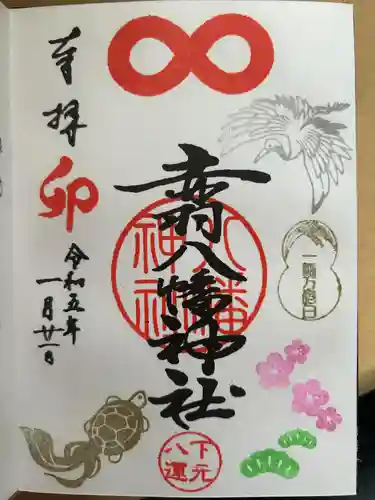 奉拝
卯
令和五年
一月廿一日
赤羽八幡神社
八幡
神社
一粒万倍日
下元
八運